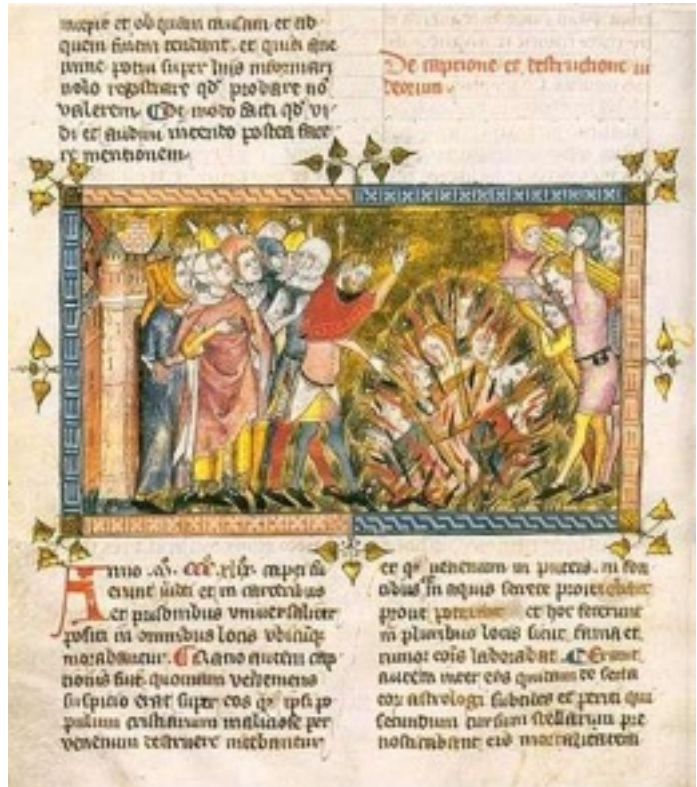 et ob quam causam et ad
quem finem tendant. et quia
potui super hiis informari
nolo registrare qd probare no
valerem. De modo qd vi
di et audivi intendo postea face
re mentionem.
De captione et destructione iu
deorum.
Anno .m. ccc. xlix. capti fu
erunt iudei et in carceribus
et prisonibus universaliter
positi in omnibus locis ubicunq
morabantur. Causa autem cap
tionis fuit quoniam vehemens
suspicio erat super eos qd ipsi po
pulum cristianum maliciose per
venenum destruere nitebantur
et qd venenum in puteis. in fon
tibus in aquis secrete
prout poterant et hoc fecerunt
in pluribus locis sicut fama et
rumor cois laborabat. Erant
autem inter eos quidam de secta
eor astrologi subtiles et periti qui
secundum cursum stellarum pre
nosticabant eis mortalitatem